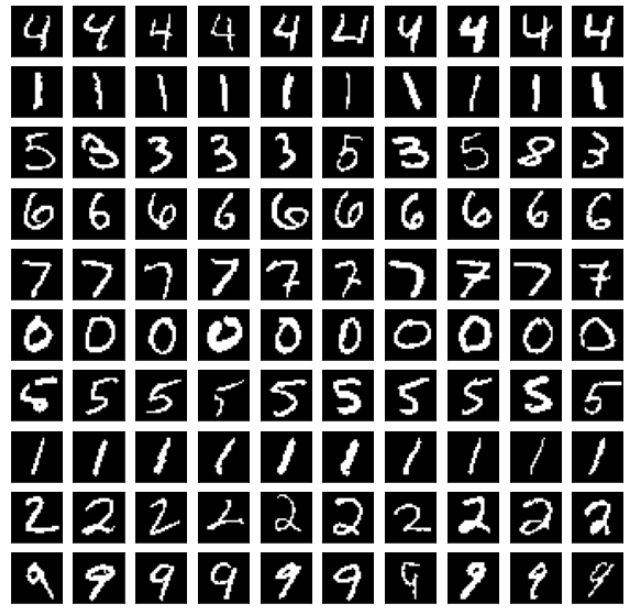 4 4 4 4 4 4 4 4 4 4
1 1 1 1 1 1 1 1 1 1
5 3 3 3 3 5 3 5 8 3
6 6 6 6 6 6 6 6 6 6
7 7 7 7 7 7 7 7 7 7
0 0 0 0 0 0 0 0 0 0
5 5 5 5 5 5 5 5 5 5
1 1 1 1 1 1 1 1 1 1
2 2 2 2 2 2 2 2 2 2
9 9 9 9 9 9 9 9 9 9